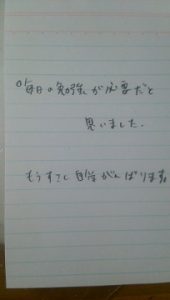 毎日の勉強が必要だと
思いました.
もうすこし自分がんばります。